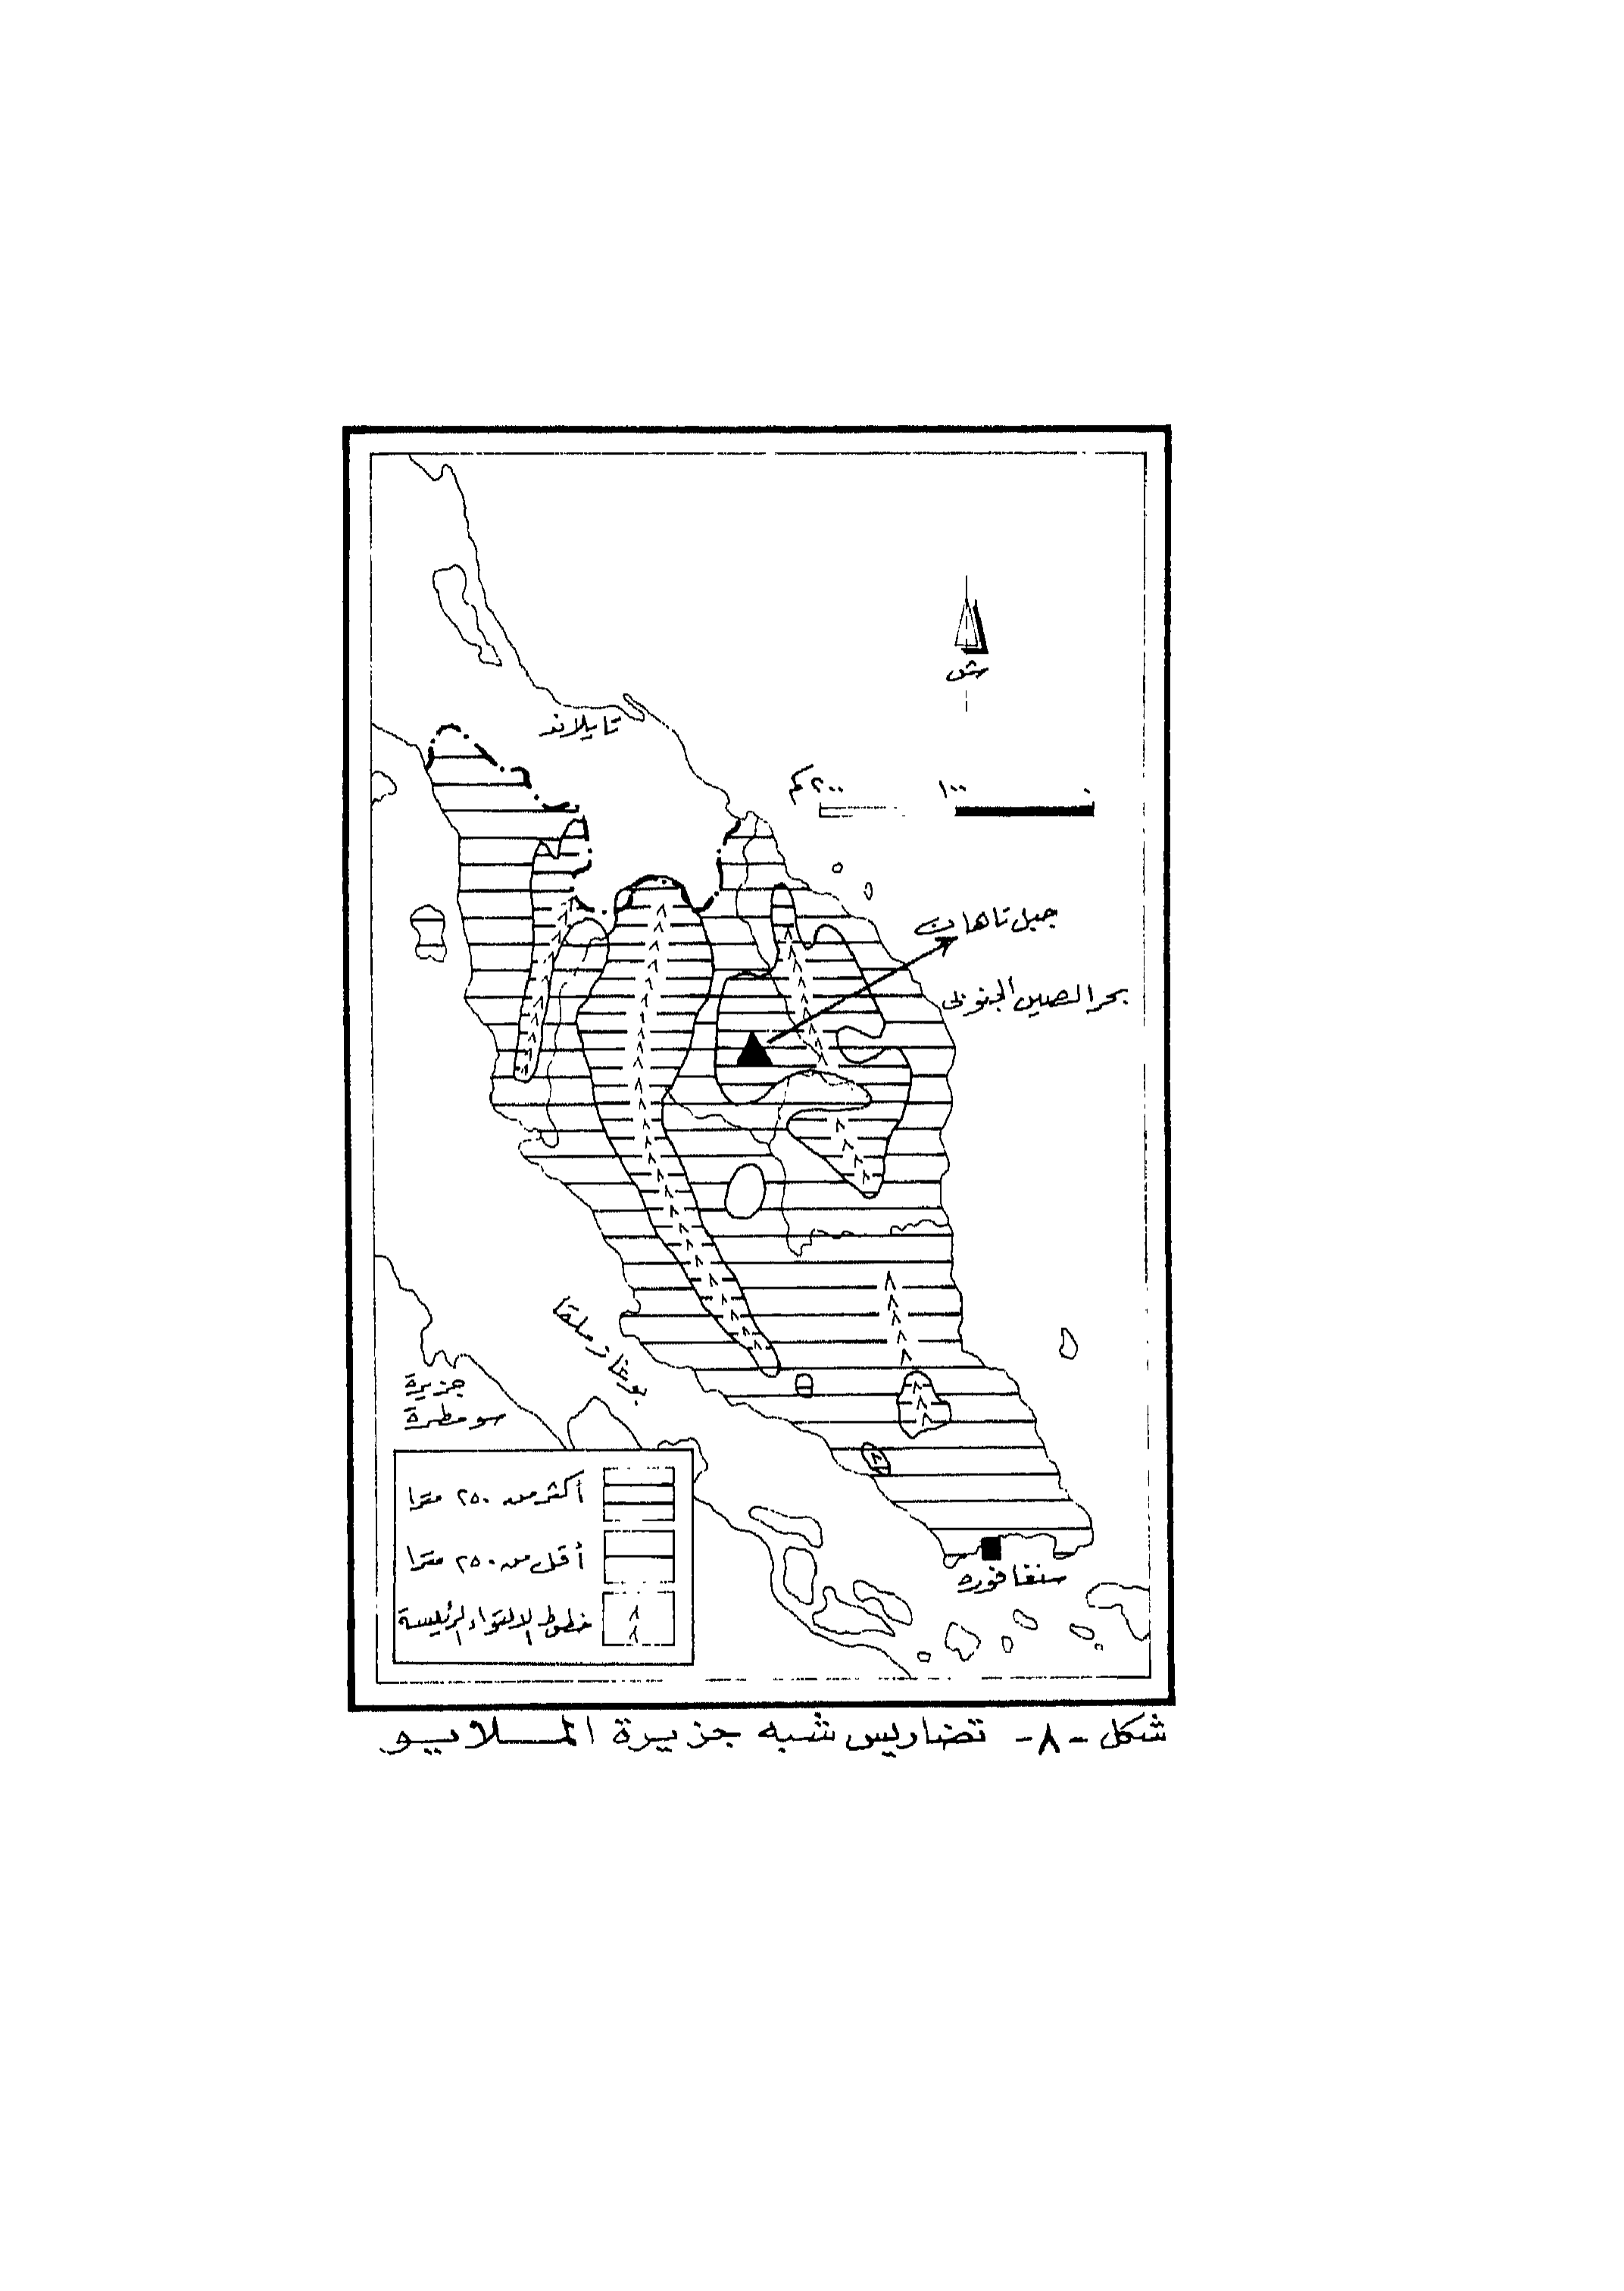 تايلاند
ش
٢٠٠ كم
١٠٠
٠
جبل تاهان
بحر الصين الجنوبى
بوغاز ملقا
جزيرة
سومطرة
أكثر من ٢٥٠ مترا
أقل من ٢٥٠ مترا
خطوط الالتواء الرئيسة
سنغافوره
شكل -٨- تضاريس شبه جزيرة الملايو